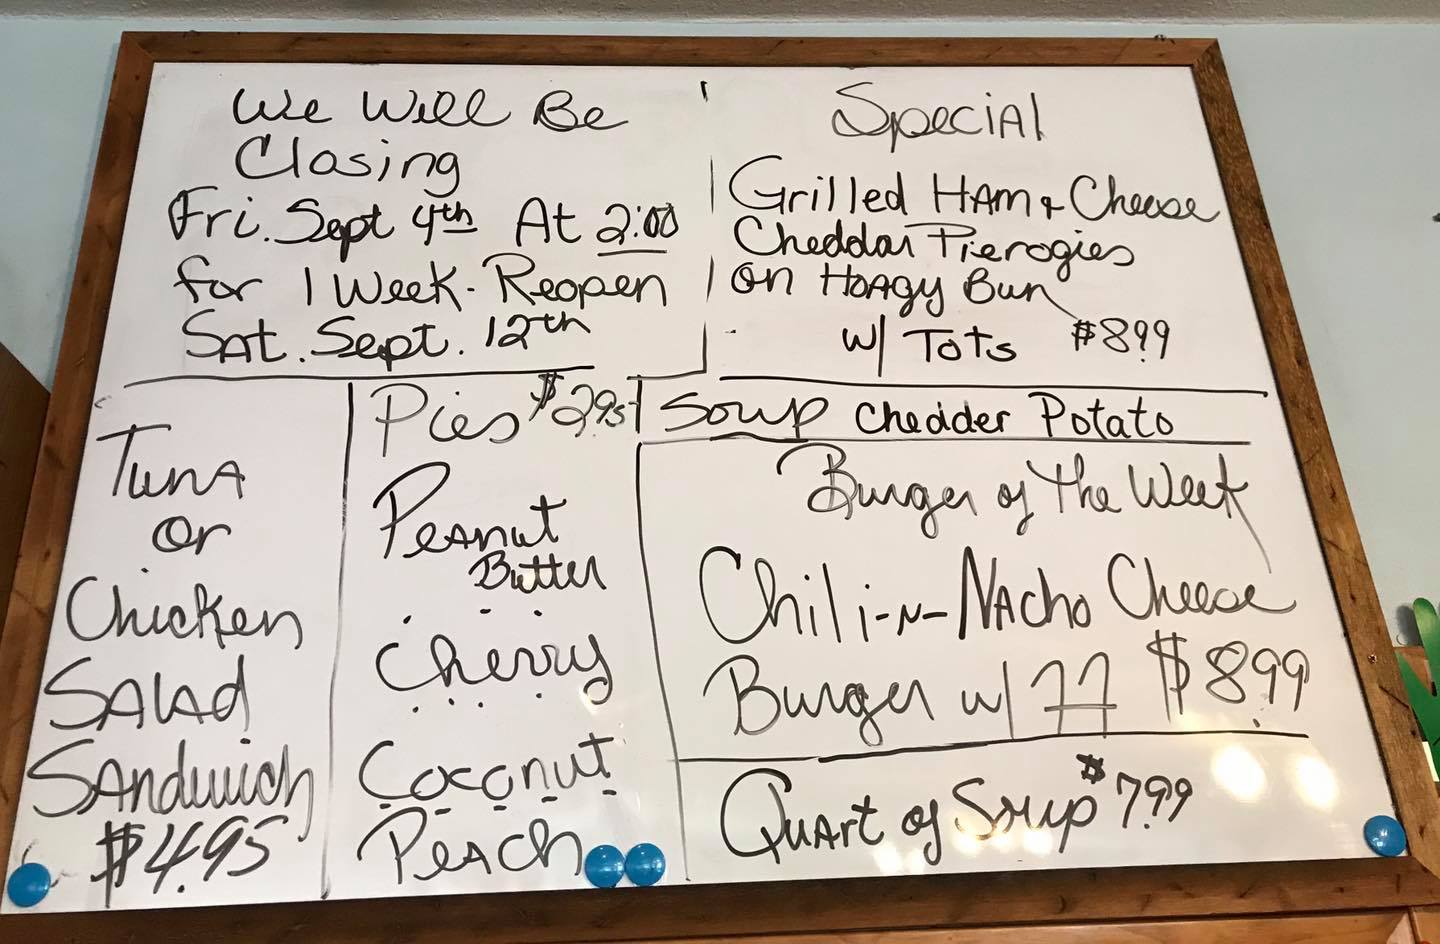 We Will Be
Closing
Fri. Sept 4th At 2:00
for 1 Week - Reopen
Sat. Sept. 12th
Special
Grilled Ham & Cheese
Cheddar Pierogies
on Hoagy Bun
w/ Tots $8.99
Tuna
or
Chicken
Salad
Sandwich
$4.95
Pies $2.95
Peanut
Butter
Cherry
Coconut
Peach
Soup Chedder Potato
Burger of The Week
Chili-N-Nacho Cheese
Burger w/ FF $8.99
Quart of Soup $7.99